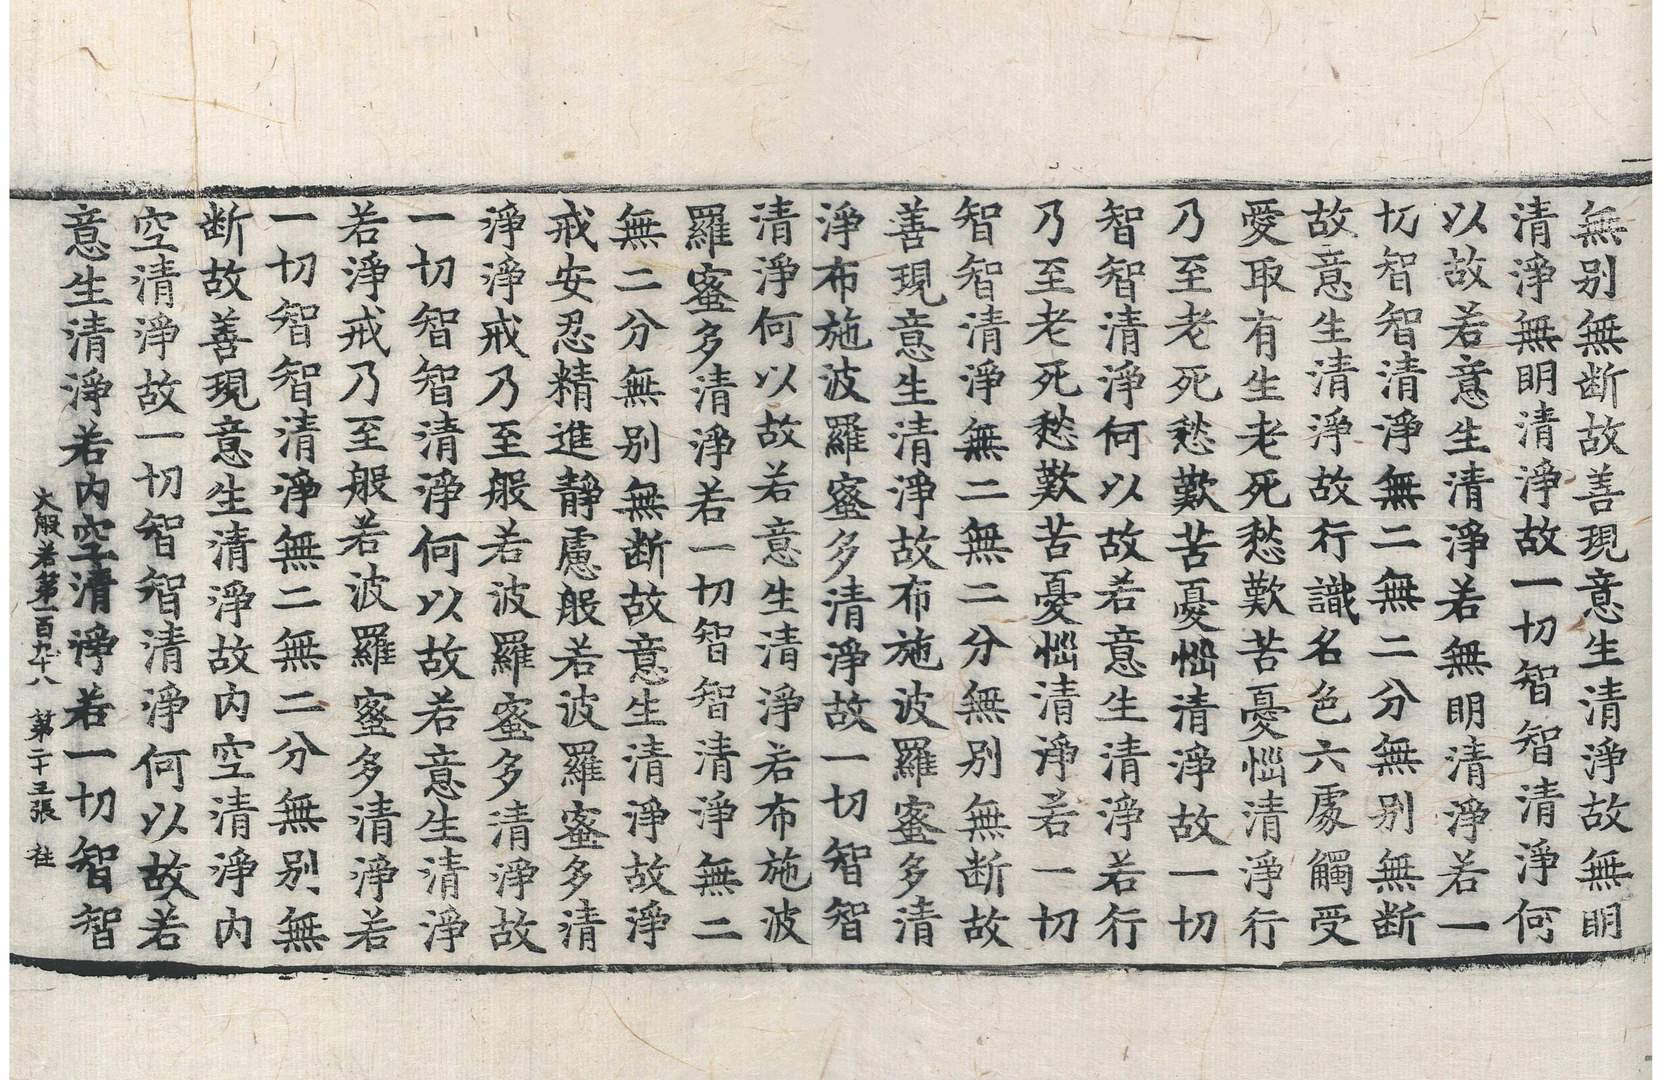 無別無断故善現意生清淨故無明
清淨無明清淨故一切智智清淨何
以故若意生清淨若無明清淨若一
切智智清淨無二無二分無別無断
故意生清淨故行識名色六處觸受
愛取有生老死愁歎苦憂惱清淨行
乃至老死愁歎苦憂惱清淨故一切
智智清淨何以故若意生清淨若行
乃至老死愁歎苦憂惱清淨若一切
智智清淨無二無二分無別無断故
善現意生清淨故布施波羅蜜多清
淨布施波羅蜜多清淨故一切智智
清淨何以故若意生清淨若布施波
羅蜜多清淨若一切智智清淨無二
無二分無別無断故意生清淨故淨
戒安忍精進靜慮般若波羅蜜多清
淨淨戒乃至般若波羅蜜多清淨故
一切智智清淨何以故若意生清淨
若淨戒乃至般若波羅蜜多清淨若
一切智智清淨無二無二分無別無
断故善現意生清淨故内空清淨内
空清淨故一切智智清淨何以故若
意生清淨若内空清淨若一切智智
大般若第一百九十八 第二十三張